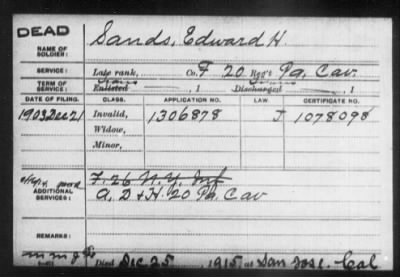 DEAD
NAME OF SOLDIER: Sands, Edward H.
SERVICE: Late rank, Co. F 20 Reg't Pa. Cav.
TERM OF SERVICE: Enlisted , 1 Discharged , 1
DATE OF FILING. CLASS. APPLICATION NO. LAW. CERTIFICATE NO.
1903 Dec 21 Invalid, 1306878 J 1078098
Widow,
Minor,
ADDITIONAL SERVICES: F. 26 N.Y. Inf
A, D & H. 20 Pa. Cav
REMARKS:
Died Dec 25, 1915 at San Jose, Cal